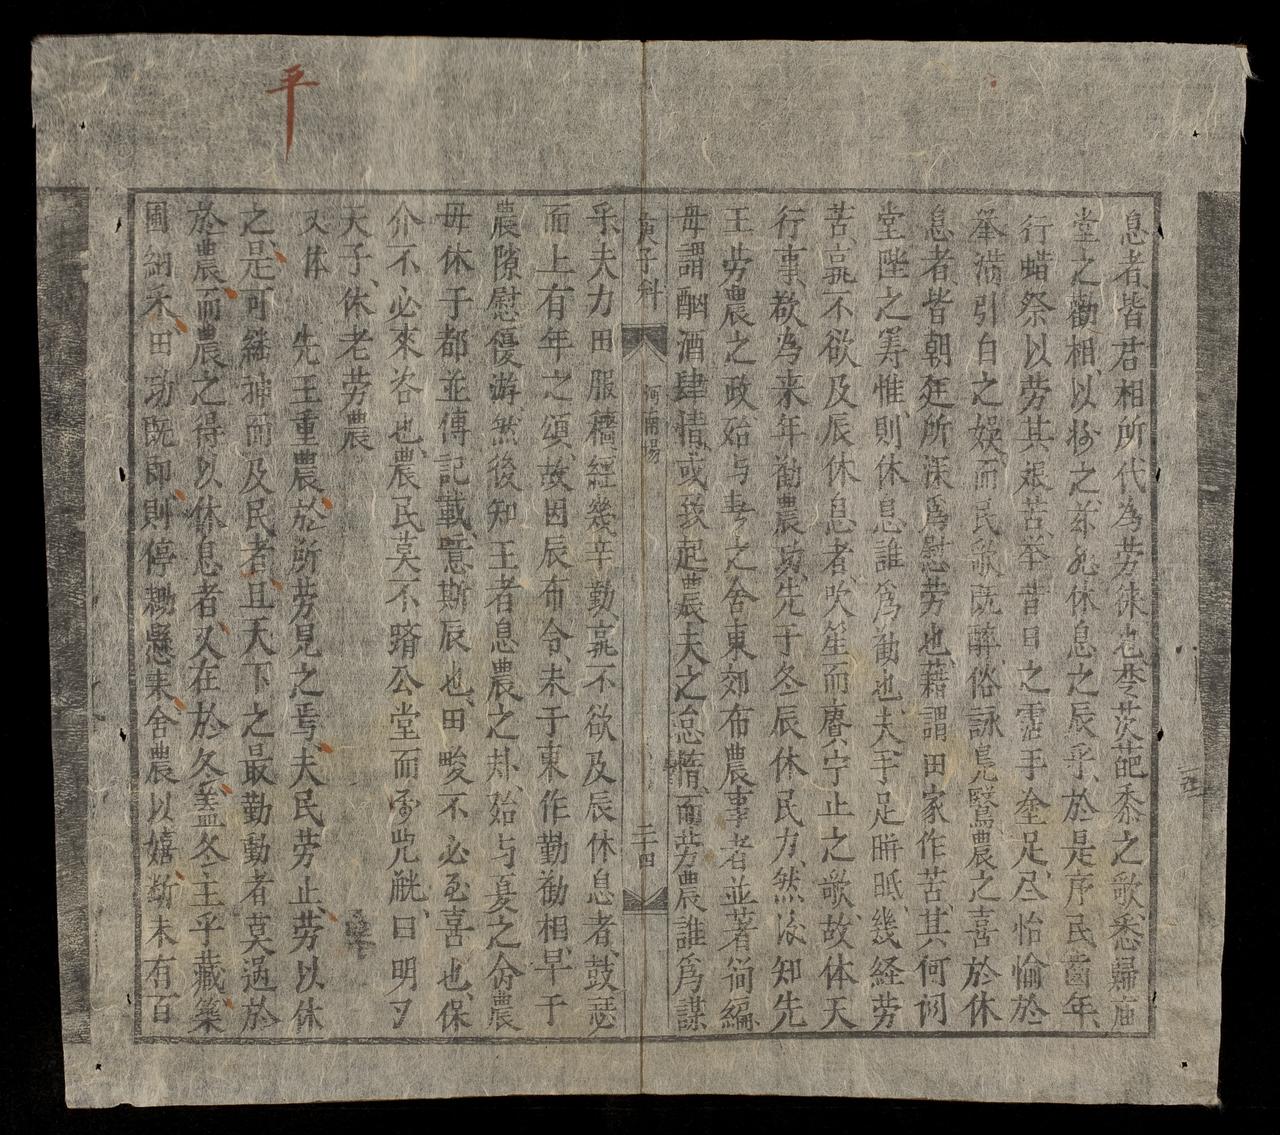 息者皆君相所代為劳徕也梦茨葩黍之歌悉歸庙
堂之勸相以之並休息之辰乎於是序民齒年
行蜡祭以劳其艰苦举昔日之霑手塗足尽怡愉於
举满引白之娱而民歌既醉俗詠鳧鷖農之喜於休
息者皆朝廷所深為慰劳也藉謂田家作苦其何词
堂陛之筹惟則休息誰為勸也夫手足胼胝幾経劳
苦孰不欲及辰休息者吹笙而赓宁止之歌故体天
行事欲為来年勸農功先于冬辰休民力然後知先
王劳農之政始与春之舍東郊布農事者並著简編
毋謂酗酒肆情或致起農夫之怠惰而劳農誰為謀
庚子科 河南場 二十四
乎夫力田服穡経幾辛勤孰不欲及辰休息者鼓瑟
而上有年之頌故因辰布令未于東作勤勸相早于
農隙慰優游然後知王者息農之典始与夏之命農
毋休于都並傳記載意斯辰也田畯不必至喜也保
介不必來咨也農民莫不躋公堂而兕觥曰明乃
天子休老劳農
又体 先王重農於所劳見之焉夫民劳止劳以休
之是可継神而及民者且天下之最勤動者莫過於
於農而農之得以休息者又在於冬盖冬主乎藏築
圃納禾田功既即則停耡懸耒舍農以嬉斯未有百
平